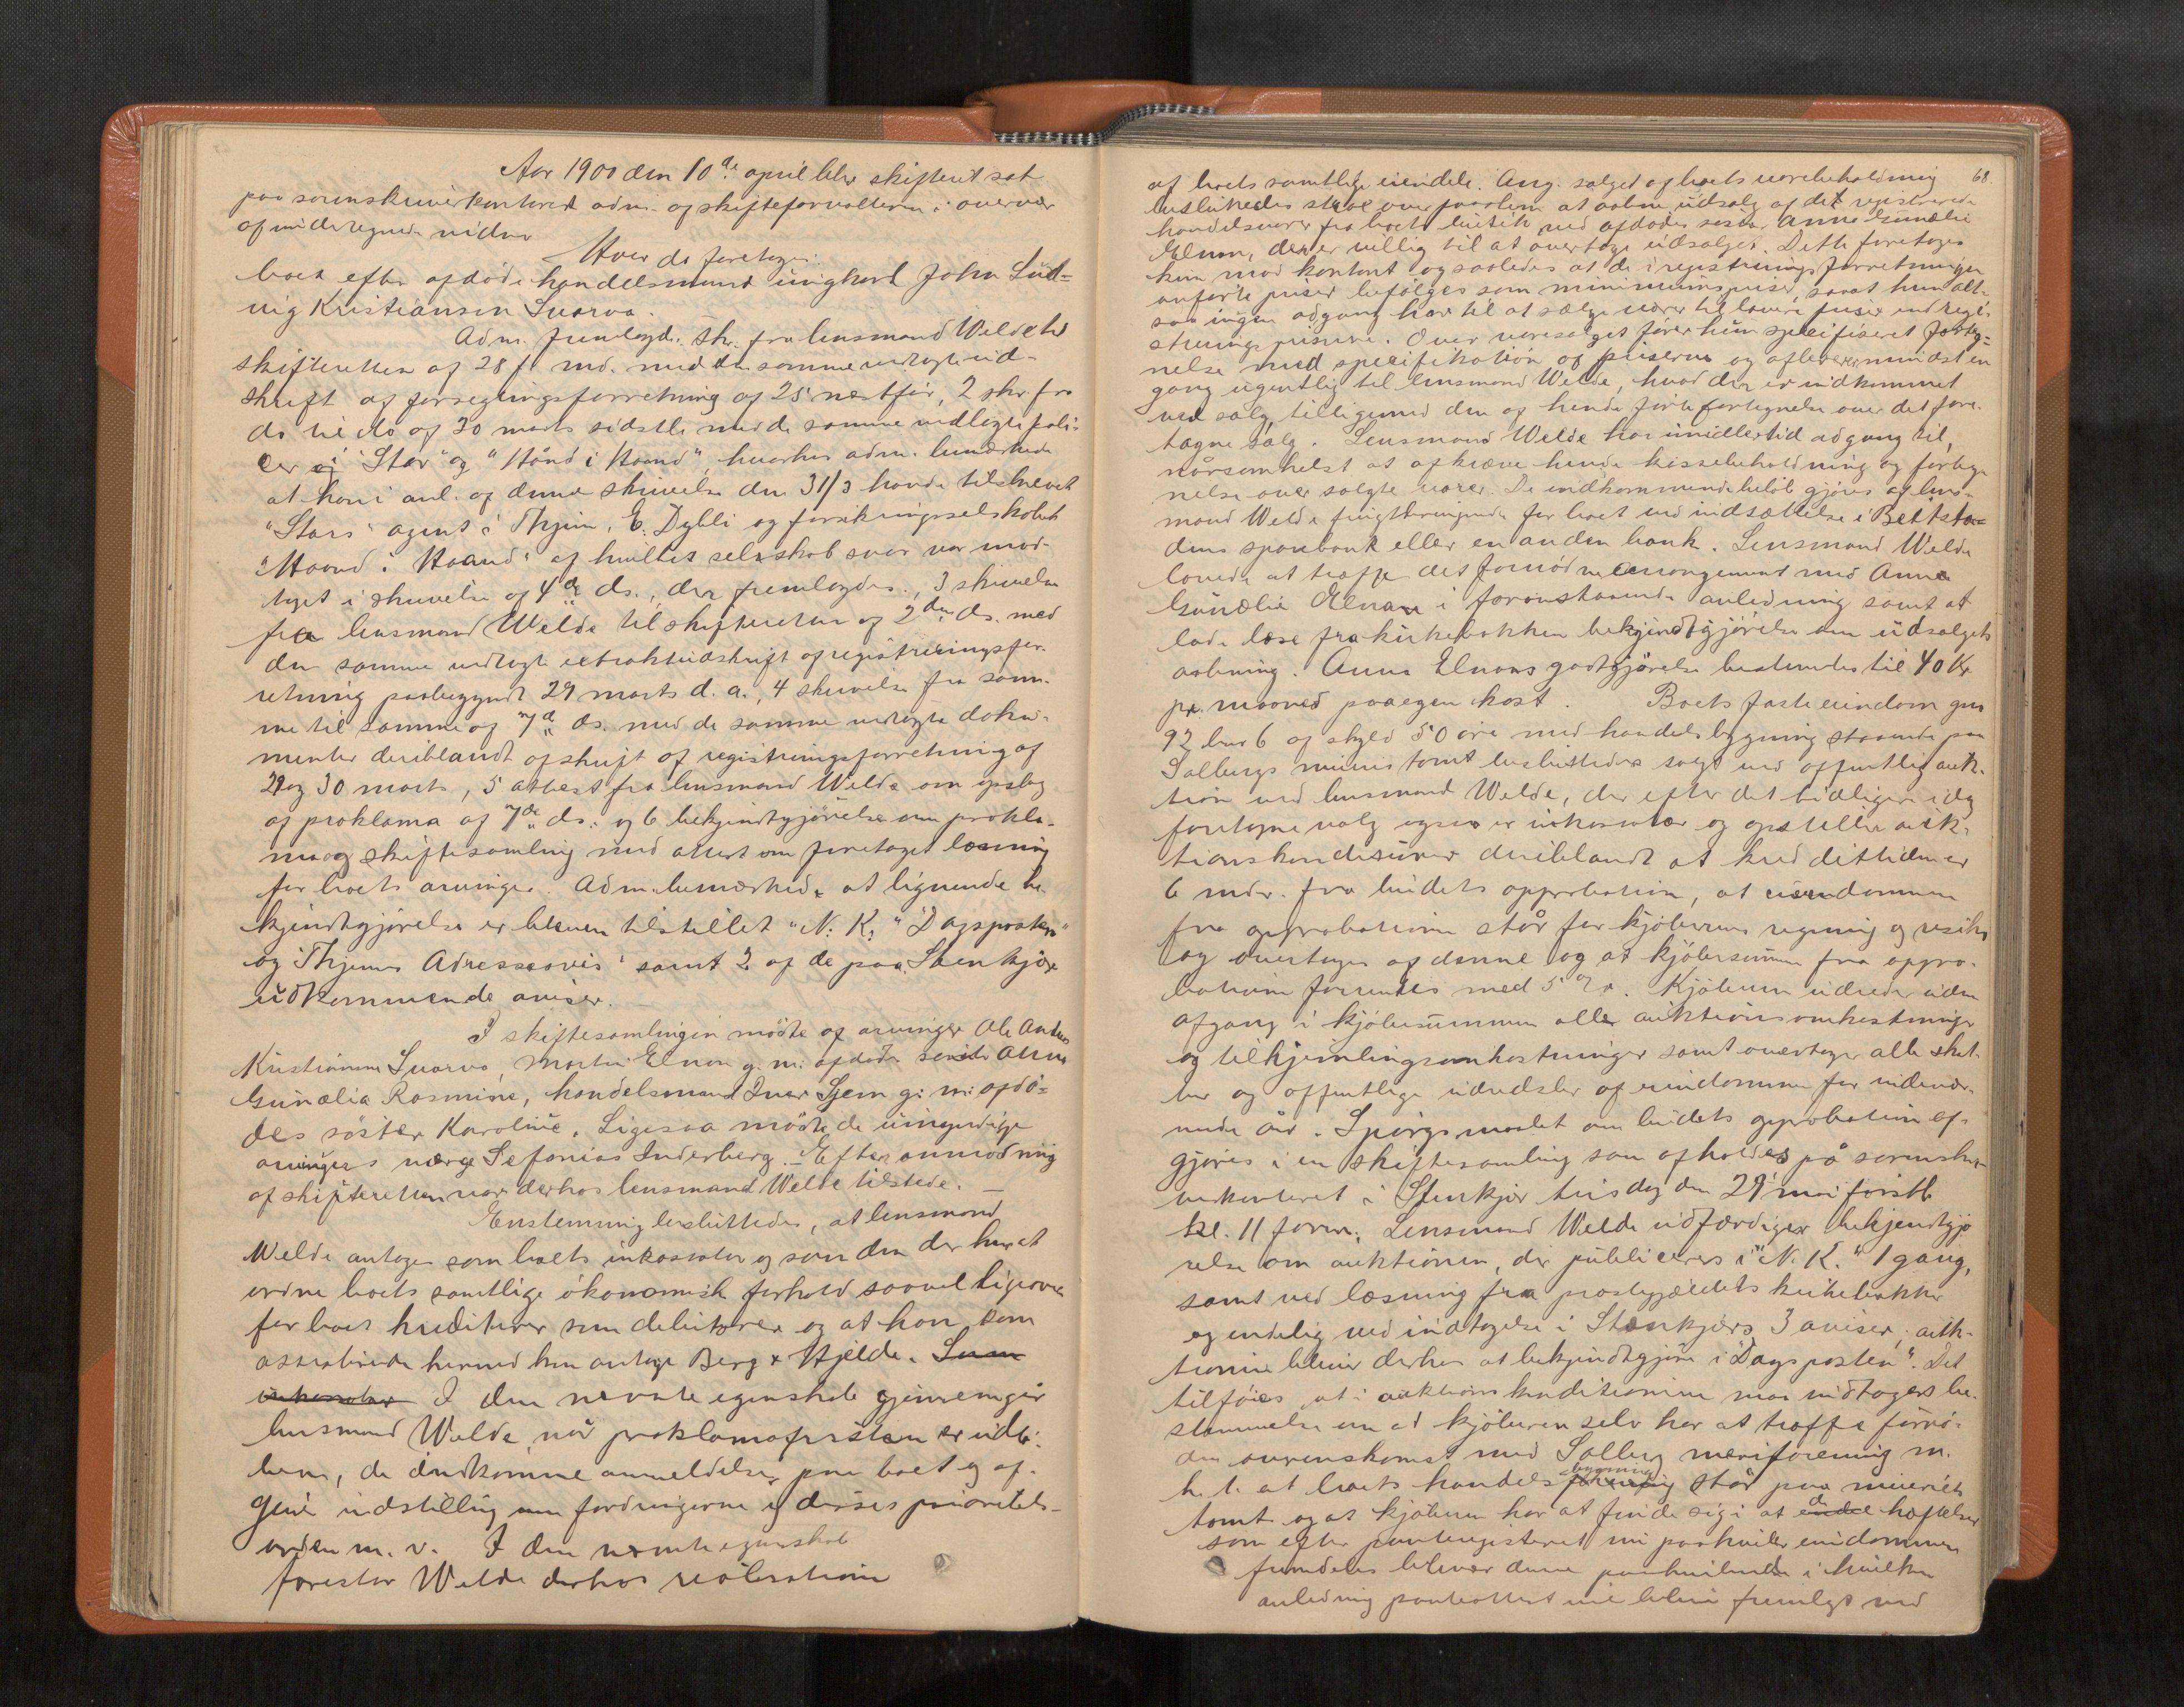 Aar 1900 den 10de april blev skifteret sat
paa sorenskriverkontoret adm. af skifteforvalteren i overvær
af undertegnede vidner
Hvor da foretoges:
boet efter afdøde handelsmand ungkarl John Lud-
vig Kristiansen Svarva.
Adm. fremlagde: 1 skr. fra lensmand Welde til
skifteretten af 28 f. md. med den samme vedlagte ud-
skrift af forseglingsforretning af 25 næstfør, 2 skr. fra
do til do af 30 marts sidstl. med de samme vedlagte poli-
cer i "Star" og "Haand i Haand", hvorhos adm. bemærkede
at han i anl. af denne skrivelse den 31/3 havde tilskrevet
"Stars" agent i Thjem, E. Dybli og forsikringsselskabet
"Haand i Haand" af hvilket selskab svar var mod-
taget i skrivelse af 4de ds., der fremlagdes, 3 skrivelse
fra lensmand Welde til skifteretten af 2den ds. med
den samme vedlagte extraktudskrift af registreringsfor-
retning paabegyndt 29 marts d. a., 4 skrivelse fra sam-
me til samme af 7de ds. med de samme vedlagte doku-
menter deriblandt afskrift af registreringsforretning af
29 og 30 marts, 5 attest fra lensmand Welde om opslag
af proklama af 7de ds. og 6 bekjendtgjørelse om prokla-
ma og skiftesamling med attest om foretaget læsning
for boets arvinger. Adm. bemærkede at lignende be-
kjendtgjørelse er bleven tilstillet "N. K." "Dagsposten"
og "Thjems Adresseavis" samt 2 af de paa Stenkjær
udkommende aviser. —
I skiftesamlingen mødte af arvinger Ole Anton
Kristiansen Svarva, Martin Elnan g. m. afdødes søster Anna
Gunælia Rosmine, handelsmand Iver Sjem g: m: afdø-
des søster Karoline. Ligesaa mødte de umyndige
arvingers værge Sefanias Inderberg. — Efter anmodning
af skifteretten var derhos lensmand Welde tilstede. —
Enstemmig besluttedes, at lensmand
Welde antages som boets inkassator og som den der har at
ordne boets samtlige økonomisk forhold saavel ligeover
for boets kreditorer som debitorer og at han som
assisterende hermed kan antage Berg & Hjelde. Som
inkassator I den nævnte egenskab gjennemgår
lensmand Welde, når proklamafristen er udlø-
ben, de indkomne anmeldelser paa boet og af-
give indstilling om fordringerne og disses prioritets-
orden m. v. I den nævnte egenskab
forestår Welde derhos realisationen
68.
af boets samtlige eiendele. Ang. salget af boets varebeholdning
besluttedes straks over paasken at aabne udsalg af det registrerede
handelsvarer fra boets butik ved afdødes søster Anna Gunælie
Elnan, der er villig til at overtage udsalget. Dette foretages
kun mod kontant og saaledes at de i registreringsforretningen
anførte priser befølges som minimumspriser, saa at hun alt-
saa ingen adgang har til at sælge varer til lavere priser end regi-
streringspriserne. Over varesalget fører hun specificeret forteg-
nelse med specifikation af priserne og afleverer mindst en
gang ugentlig til lensmand Welde, hvad der er indkommet
ved salg, tilligemed den af hende førte fortegnelse over det fore-
tagne salg. Lensmand Welde har imidlertid adgang til,
nårsomhelst at afkræve hende kassebeholdning og forteg-
nelse over solgte varer. De indkommende beløb gjøres af lens-
mand Welde frugtbringende for boet ved indsættelse i Beitsta-
dens sparebank eller en anden bank. Lensmand Welde
lovede at træffe det fornødne arrangement med Anna
Gunælie Elnan i foranstaaende anledning samt at
lade læse fra kirkebakken bekjendtgjørelse om udsalgets
aabning. Anna Elnans godtgjørelse bestemtes til 40 Kr
pr. maaned paa egen kost. Boets faste eiendom gno
92 bno 6 af skyld 50 øre med handelsbygning staaende paa
Solbergs meieris tomt besluttedes solgt ved offentlig auk-
tion ved lensmand Welde, der efter det tidligere idag
foretagne valg ogsaa er inkassator og opstiller auk-
tionskonditioner deriblandt at kredittiden er
6 mdr. fra budets approbation, at eiendommen
fra approbationen står for kjøberens regning og risiko
og overtages af denne og at kjøbesummen fra appro-
bationen forrentes med 5 %. Kjøberen udreder uden
afgang i kjøbesummen alle auktionsomkostninger
og tilhjemlingsomkostninger samt overtager alle skat-
ter og offentlige udredsler af eiendommen for indevær-
ende år. Spørgsmaalet om budets approbation af-
gjøres i en skiftesamling som afholdes på sorenskri-
verkontoret i Stenkjær tirsdag den 29 mai førstk
kl. 11 form. Lensmand Welde udfærdiger bekjendtgjø-
relse om auktionen, der publiceres i "N. K." 1 gang,
samt ved læsning fra prestegjældets kirkebakker
og endelig ved indtagelse i Stenkjærs 3 aviser; auk-
tionen bliver derhos at bekjendtgjøre i "Dagsposten". Det
tilføies, at i auktionskonditionerne maa indtages be-
stemmelse om at kjøberen selv har at træffe fornø-
den overenskomst med Solberg meieriforening m.
h. t. at boets handelsbygning står paa meieriets
tomt og at kjøberen har at finde sig i at de hæftelser
som efter panteregisteret nu paahviler eiendommen
fremdeles bliver denne paahvilende i hvilken
anledning panteattest vil blive fremlagt ved